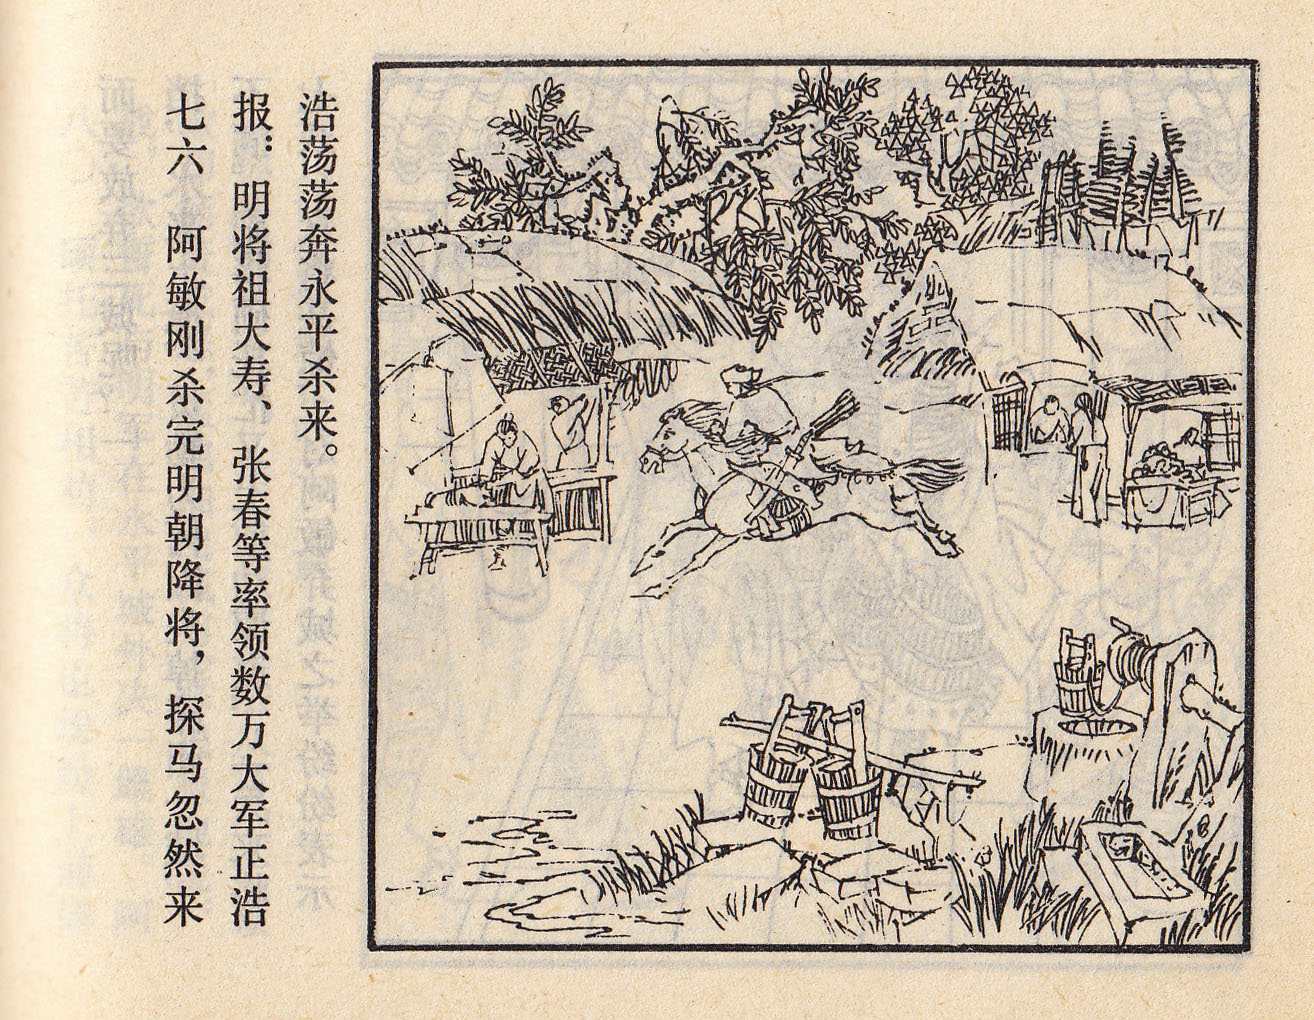 七六 阿敏刚杀完明朝降将，探马忽然来
报：明将祖大寿、张春等率领数万大军正浩
浩荡荡奔永平杀来。